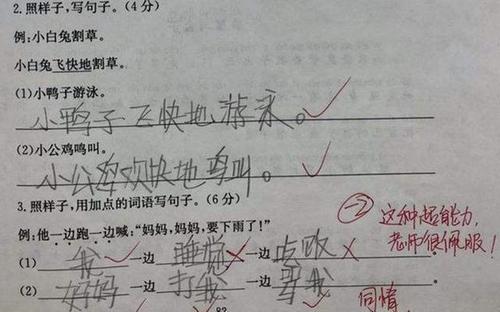 2.照样子,写句子。(4分)
例:小白兔割草。
小白兔飞快地割草。
(1)小鸭子游泳。
小鸭子飞快地游泳。
(2)小公鸡鸣叫。
小公鸡欢快地鸣叫。
3.照样子,用加点的词语写句子。(6分)
例:他一边跑一边喊:“妈妈,妈妈,要下雨了!”
(1) 我 一边 睡觉 一边 吃饭
(2) 妈妈 一边 打我 一边 骂我
-2 这种超能力,
老师很佩服!
同情